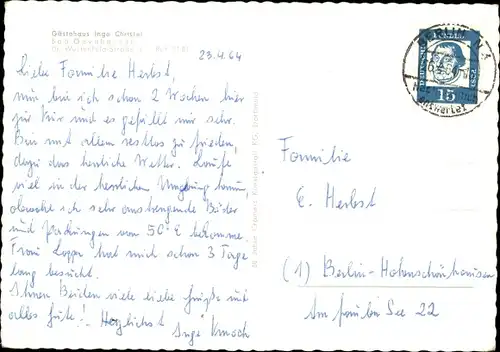 Gästehaus Inge Christel
23.4.64
Liebe Familie Herbst,
nun bin ich schon 2 Wochen hier
zur Kur und es gefällt mir sehr.
Bin mit allem restlos zufrieden,
dazu das herrliche Wetter. Laufe
viel in der herrlichen Umgebung herum,
obwohl ich sehr anstrengende Bäder
und Packungen von 50° C bekomme.
Frau hat mich schon 3 Tage
lang besucht.
Ihnen Beiden viele liebe Grüße und
alles Gute! Herzlichst Inge
Familie
E. Herbst
(1) Berlin-Hohenschönhausen
Am faulen See 22
BERLIN N 4
15